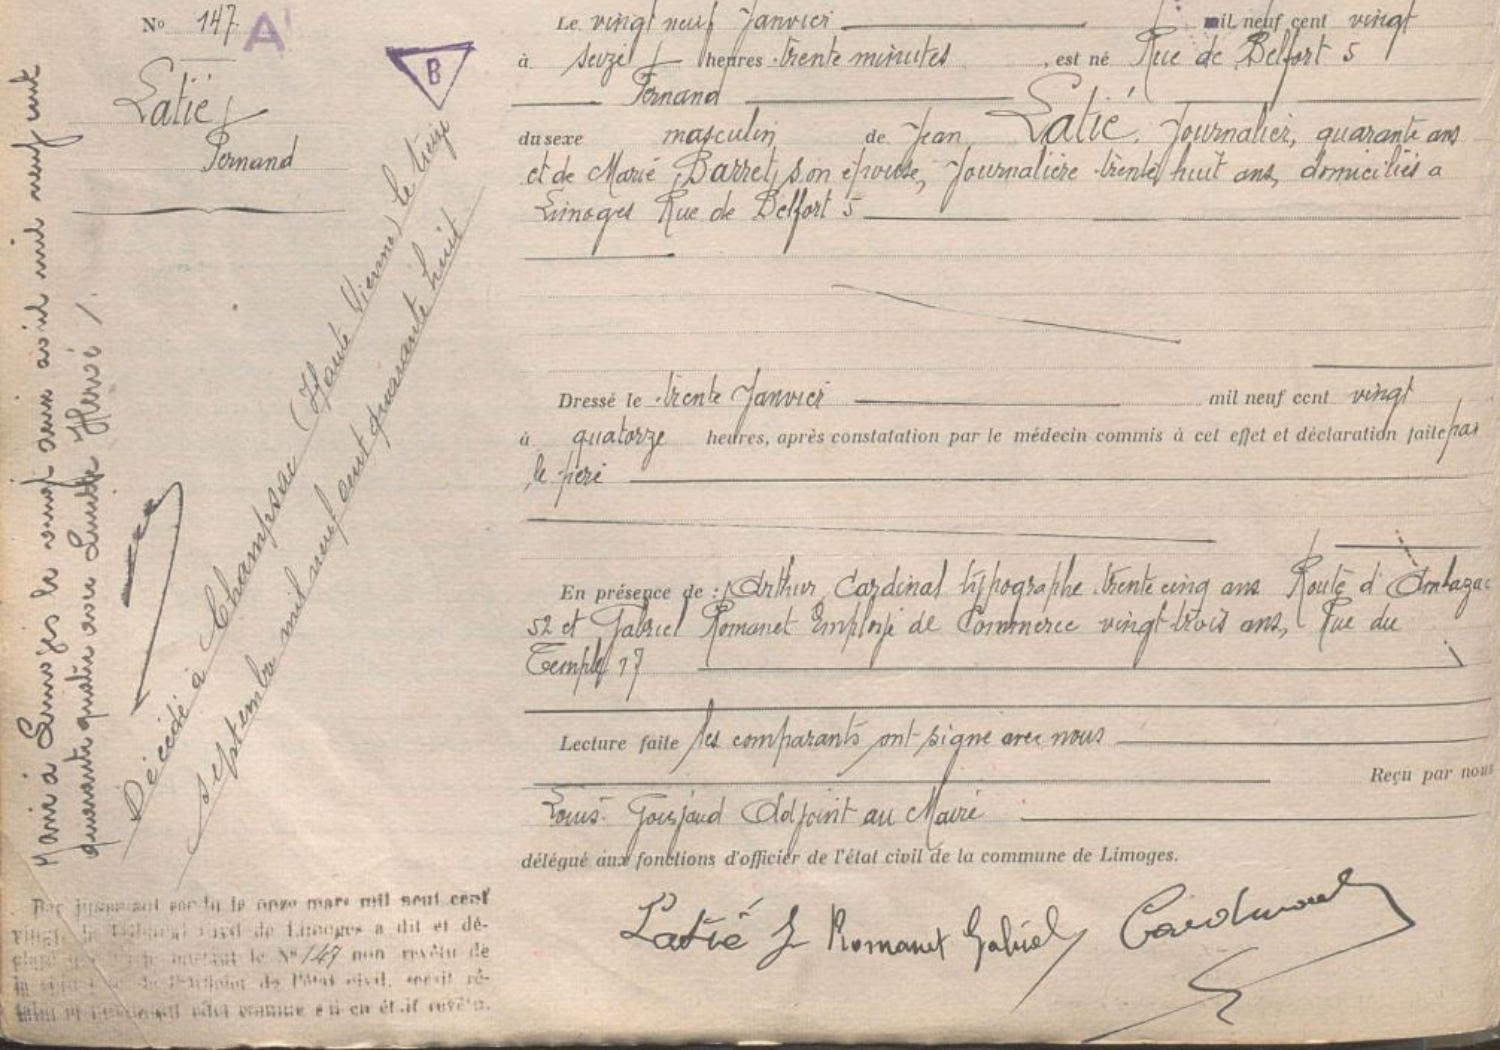 N° 147
A
B
Latié
Fernand
Le vingt neuf Janvier mil neuf cent vingt
à seize heures trente minutes, est né Rue de Belfort 5
Fernand
du sexe masculin de Jean Latié. Journalier, quarante ans
et de Marie Barret, son épouse, Journalière trente huit ans, domiciliés a
Limoges Rue de Belfort 5
Dressé le trente Janvier mil neuf cent vingt
à quatorze heures, après constatation par le médecin commis à cet effet et déclaration faite par
le père
En présence de : Arthur Cardinal typographe trente cinq ans Route d'Ambazac
52 et Gabriel Romanet Employé de Commerce vingt-trois ans, Rue du
Temple 17
Lecture faite les comparants ont signé avec nous
Reçu par nous
Louis Goujaud Adjoint au Maire
délégué aux fonctions d'officier de l'état civil de la commune de Limoges.
Latié J Romanet Gabriel Cardinal
Marié à Limoges le vingt avril mil neuf cent
quarante quatre avec Hervé
Décédé à Champsac (Haute Vienne) le treize
septembre mil neuf cent quarante huit
Par jugement rendu le onze mars mil neuf cent
vingt, le Tribunal civil de Limoges a dit et dé-
N° 147 non revêtu de
la signature de l'Adjoint de l'état civil, serait ré-
comme s'il en était revêtu.